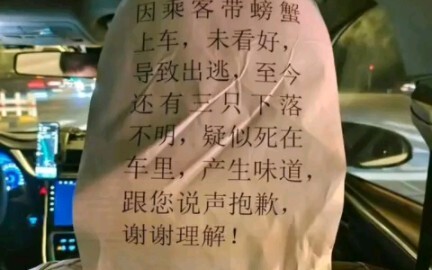 因乘客带螃蟹
上车，未看好，
导致出逃，至今
还有三只下落
不明，疑似死在
车里，产生味道，
跟您说声抱歉，
谢谢理解！